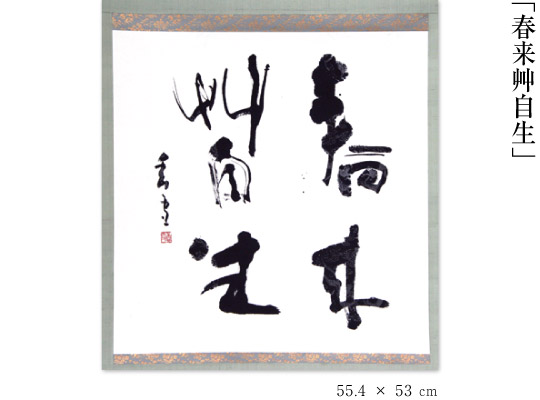 「春来艸自生」
春来
艸自生
55.4 × 53 cm